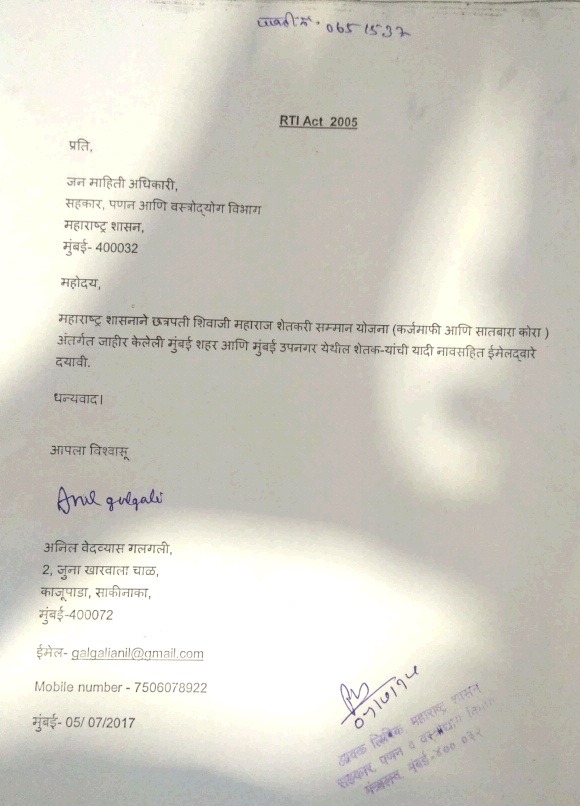 पावती नं. 0651537
RTI Act 2005
प्रति,
जन माहिती अधिकारी,
सहकार, पणन आणि वस्त्रोद्योग विभाग
महाराष्ट्र शासन,
मुंबई- 400032
महोदय,
महाराष्ट्र शासनाने छत्रपती शिवाजी महाराज शेतकरी सम्मान योजना (कर्जमाफी आणि सातबारा कोरा )
अंतर्गत जाहीर केलेली मुंबई शहर आणि मुंबई उपनगर येथील शेतक-यांची यादी नावसहित ईमेलद्वारे
दयावी.
धन्यवाद।
आपला विश्वासू
Anil galgali
अनिल वेदव्यास गलगली,
2, जुना खारवाला चाळ,
काजूपाडा, साकीनाका,
मुंबई-400072
ईमेल- galgalianil@gmail.com
Mobile number - 7506078922
मुंबई- 05/ 07/2017
लिपिक महाराष्ट्र शासन
सहकार, पणन व वस्त्रोद्योग विभाग
मंत्रालय, मुंबई-४०० ०३२